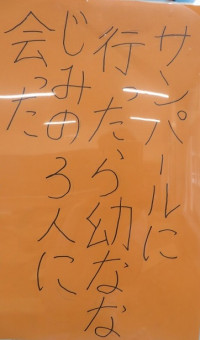 サンパールに
行ったら幼なな
じみの3人に
会った